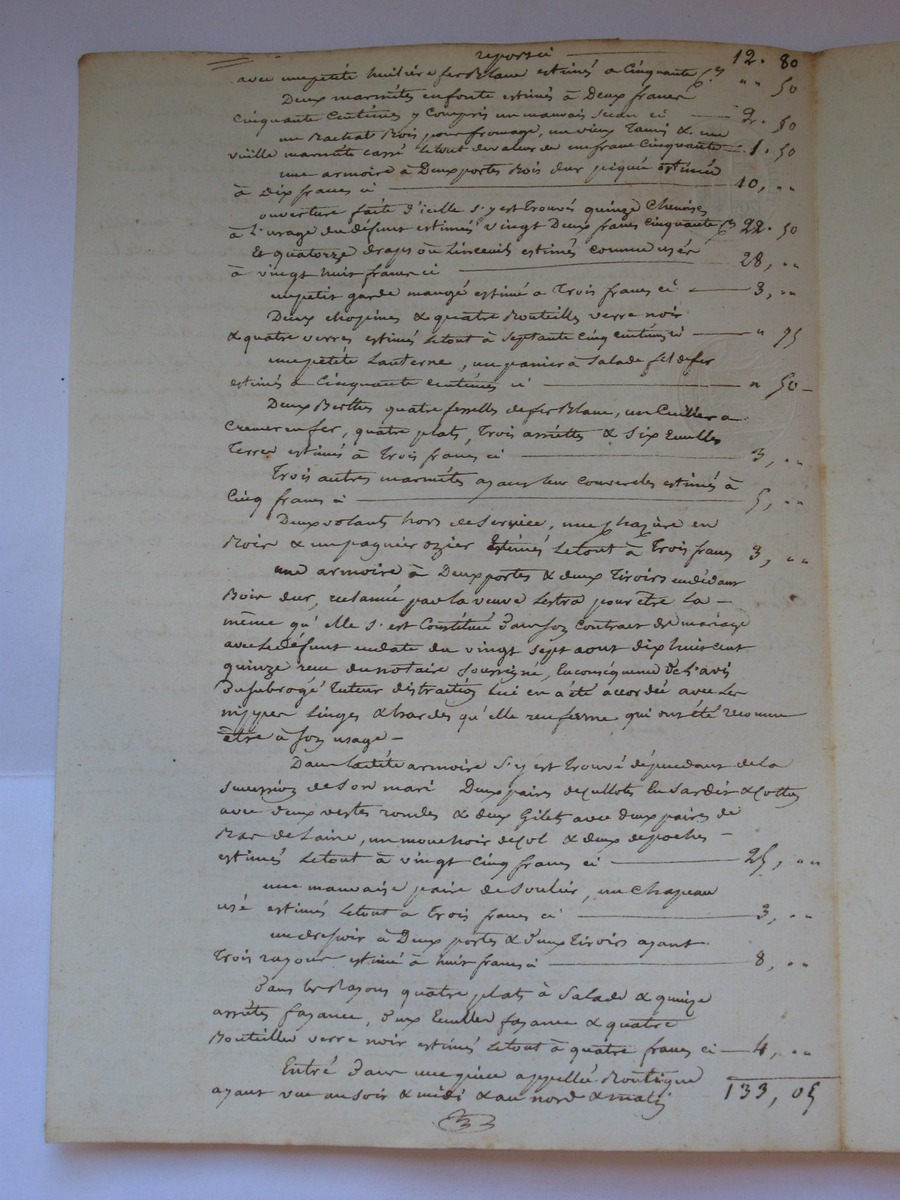 reporté ci 12. 80
avec une petite huilière fer Blanc estimés a Cinquante " 50
Deux marmites en fonte estimés à Deux francs
Cinquante Centimes y Compris un mauvais seau ci 2. 50
un Bachat Bois pour fromage, un vieux Tamis & une
vieille marmite cassé le tout de valeur de un franc Cinquante 1. 50
une armoire à Deux portes Bois dur piquée estimée
à Dix francs ci 10, "
ouverture faite d'icelle s'y est trouvés quinze Chemises
à l'usage du défunt estimés vingt Deux francs Cinquante 22. 50
Et quatorze draps ou Linceuls estimés comme usés
à vingt huit francs ci 28, "
un petit garde mangé estimé a Trois francs ci 3, "
Deux chopines & quatre Bouteilles verre noir
& quatre verres estimés Le tout à Septante Cinq centimes ci " 75
une petite Lanterne, un panier à Salade fil de fer
estimés a Cinquante Centimes ci " 50
Deux Berthes quatre fesselles de fer Blanc, un Cuiller a
Cramer en fer, quatre plats, Trois assiettes & Six Ecuelles
Terre estimés à Trois francs ci 3, "
Trois autres marmites ayant leur Couvercles estimés à
Cinq francs ci 5, "
Deux volants hors de Service, une en
Bois & un pagnier ozier Estimés Le tout à Trois francs 3, "
une armoire à Deux portes & deux Tiroirs en dedans
Bois dur, reclamée par la veuve Lestra pour être La
même qu'elle s'est Constitué dans son contrat de mariage
avec Le défunt en date du vingt sept aout dix huit cent
quinze reçu du notaire soussigné, En conséquence de l'avis
Du subrogé Tuteur distraction Lui en a été accordée avec Les
nippes Linges & hardes qu'elle renferme qui ont été reconnu
être à son usage
Dans la dite armoire s'y est Trouvé dépendant de la
succession de Son mari Deux paires de culottes En Sardis &
avec deux vestes rondes & deux Gilet avec deux paires de
Bas de Laine, un mouchoir de Col & deux de poches
estimés Le tout à vingt Cinq francs ci 25, "
une mauvaise paire de Soulier, un Chapeau
usé estimés Le tout a Trois francs ci 3, "
un dressoir à Deux portes & deux Tiroirs ayant
Trois rayons estimé à huit francs ci 8, "
Dans les Rayons quatre plats à Salade & quinze
assiettes fayance, deux Ecuelles fayance & quatre
Bouteilles verre noir estimés Le tout à quatre francs ci 4, "
Entré dans une pièce appellée Boutique
ayant vue au soir & midi & au nord & matin 133, 05